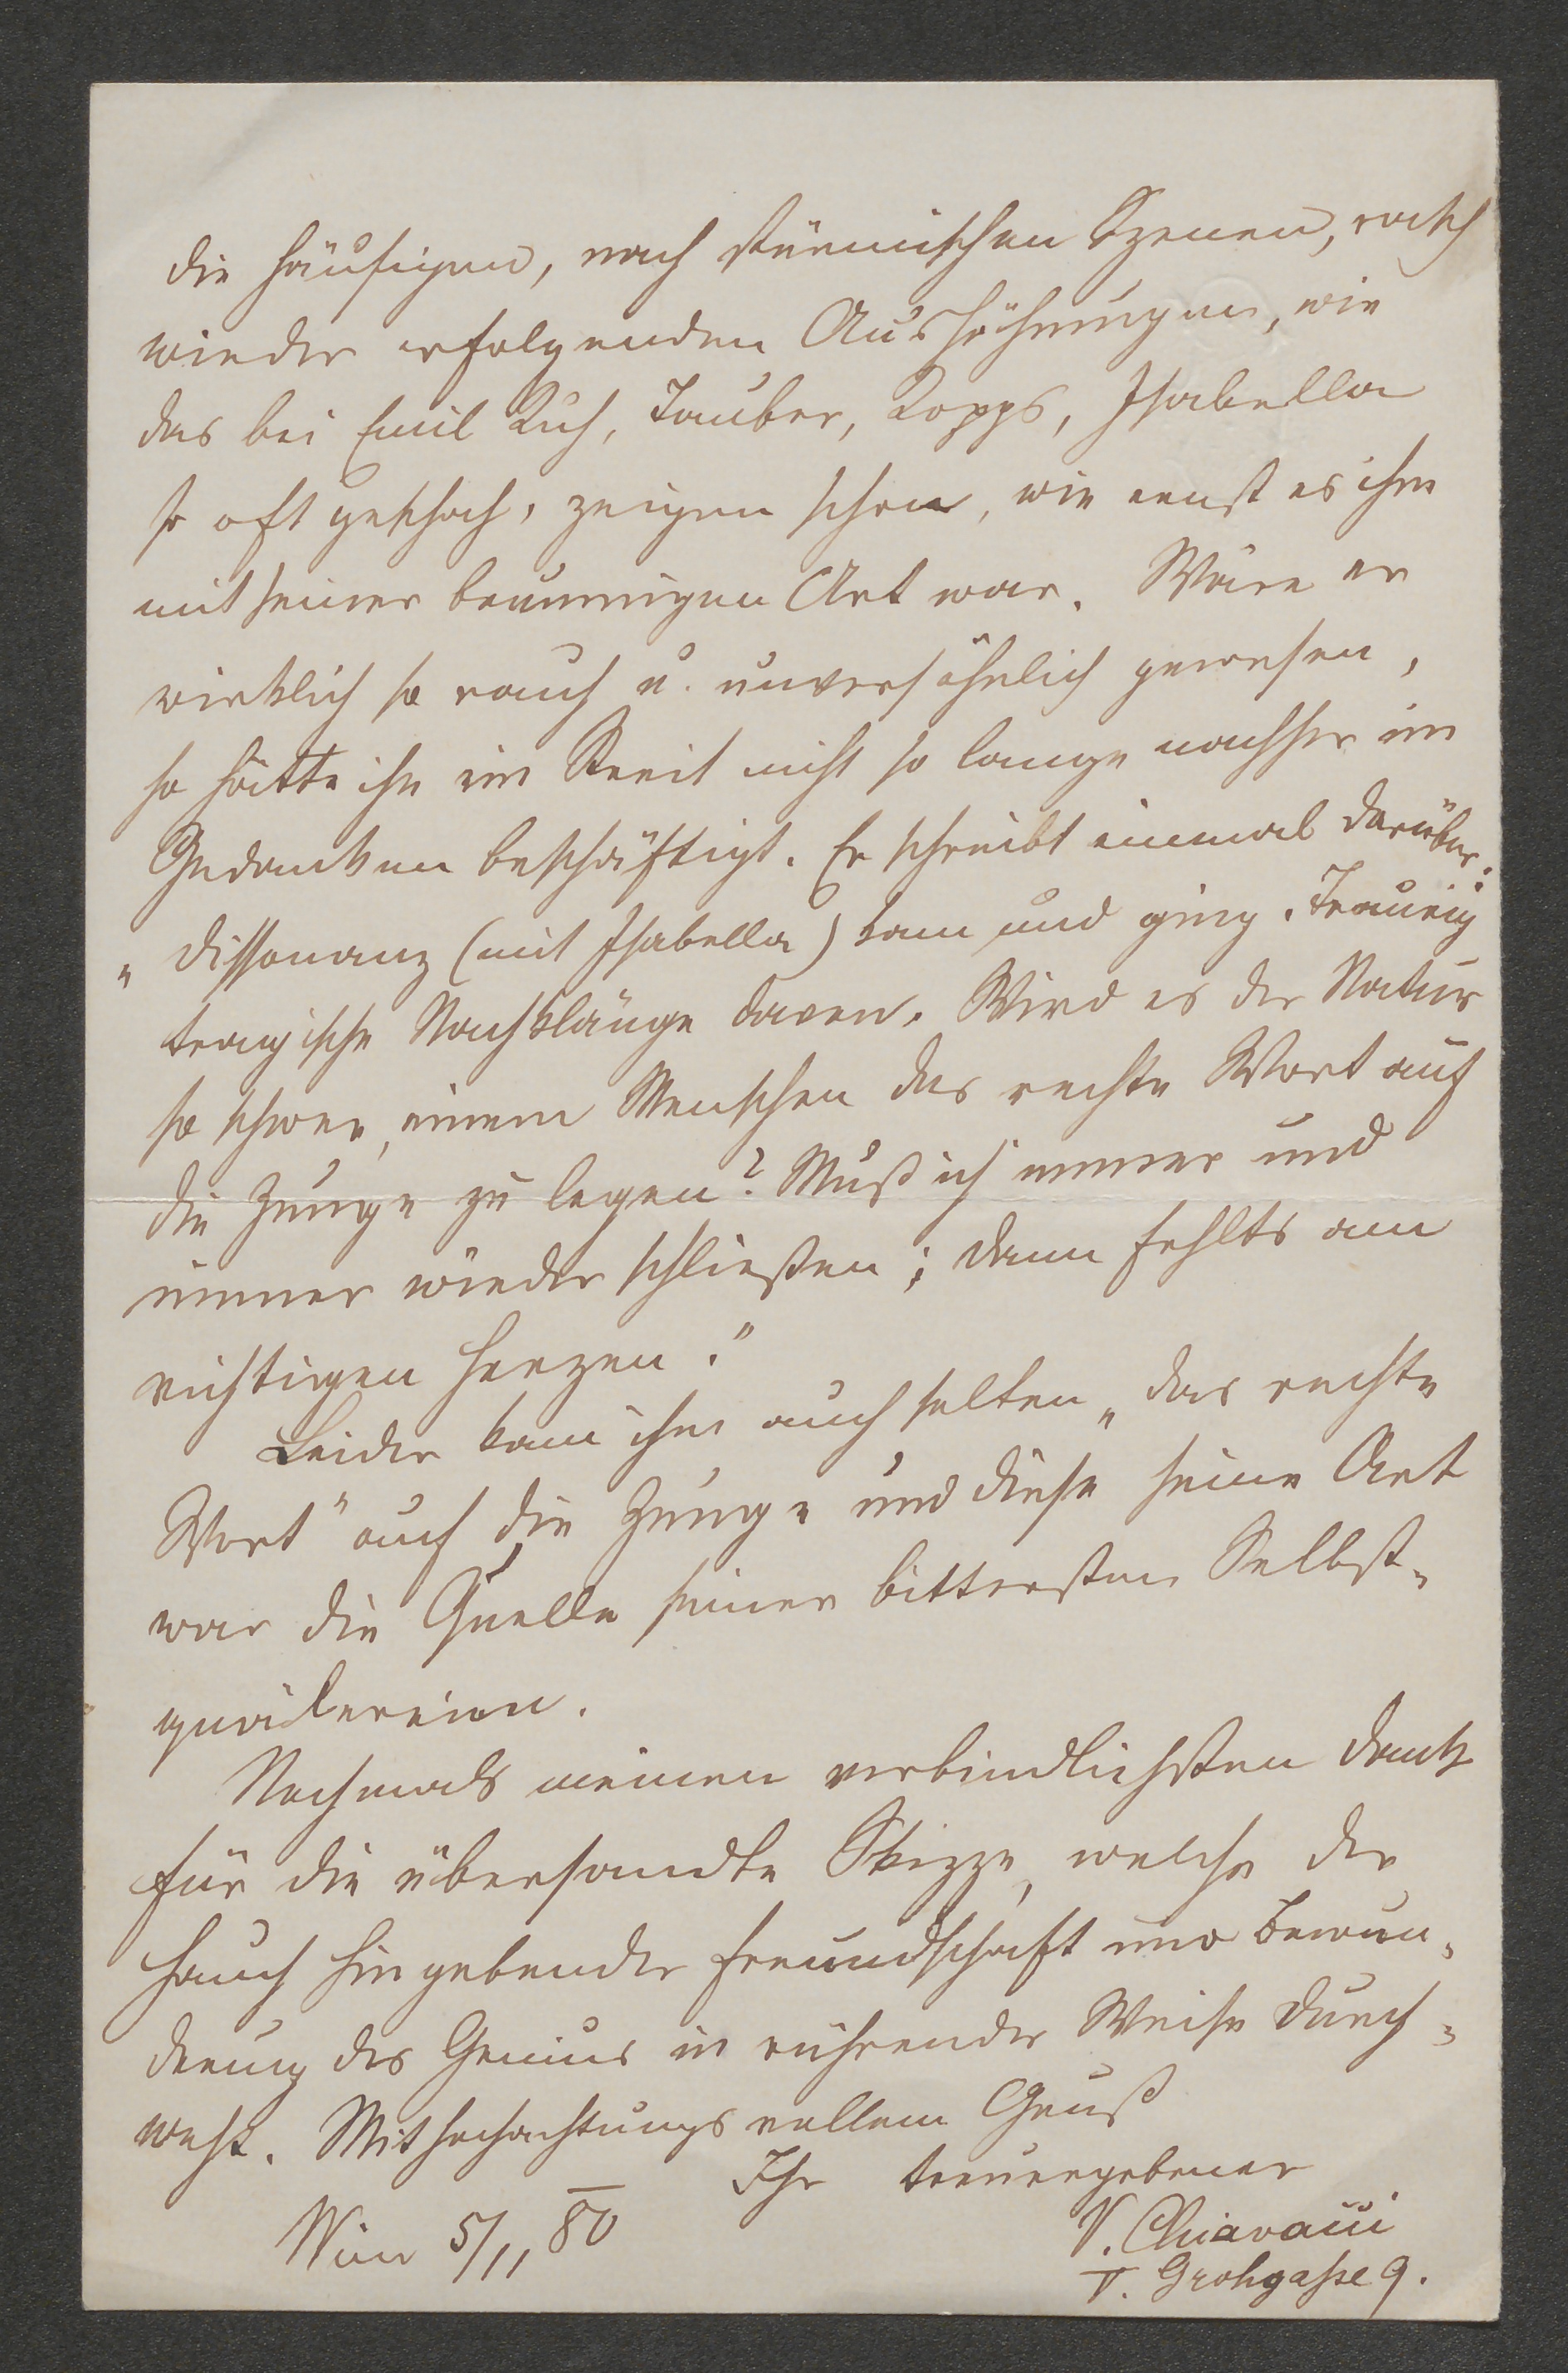 die häufigen, nach stürmischen Szenen, rasch
wieder erfolgenden Aussöhnungen, wie
das bei Emil Kuh, Tauber, Kopps, Isabella
so oft geschah, zeigen schon, wie ernst es ihm
mit seiner Art war. Wäre er
wirklich so rauh u. unversöhnlich gewesen,
so hätte ihn ein Streit nicht so lange nachher in
Gedanken beschäftigt. Er schreibt einmal darüber:
„Dissonanz (mit Isabella) kam und ging. Traurig
tragische Nachklänge davon. Wird es der Natur
so schwer, einem Menschen das rechte Wort auf
die Zunge zu legen? Muß ich immer und
immer wieder schließen; dann fehlts am
richtigen Herzen."
Leider kam ihm auch selten „das rechte
Wort" auf die Zunge und diese seine Art
war die Quelle seiner bittersten Selbst-
quälereien.
Nochmals meinen verbindlichsten Dank
für die übersandte Skizze, welche der
Hauch hingebender Freundschaft und Bewun-
derung des Genius in rührender Weise durch-
weht. Mit hochachtungsvollem Gruß
Ihr treuergebener
Wien 5/11 80
V. Chiavacci
V. Grohgasse 9.